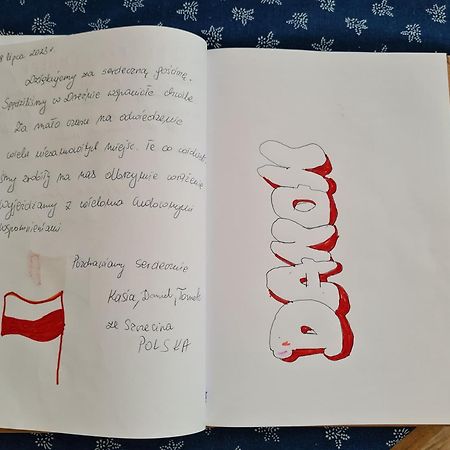 8 lipca 2023 r
Dziękujemy za serdeczną gościnę.
Spędziliśmy w Dreźnie wspaniałe chwile
Za mało czasu na odwiedzenie
wielu niesamowitych miejsc. Te co widzie-
śmy zrobiły na nas olbrzymie wrażenie
Wyjeżdżamy z wieloma cudownymi
wspomnieniami
Pozdrawiamy serdecznie
Kasia, Daniel, Tomek
ze Szczecina
POLSKA
DANOK